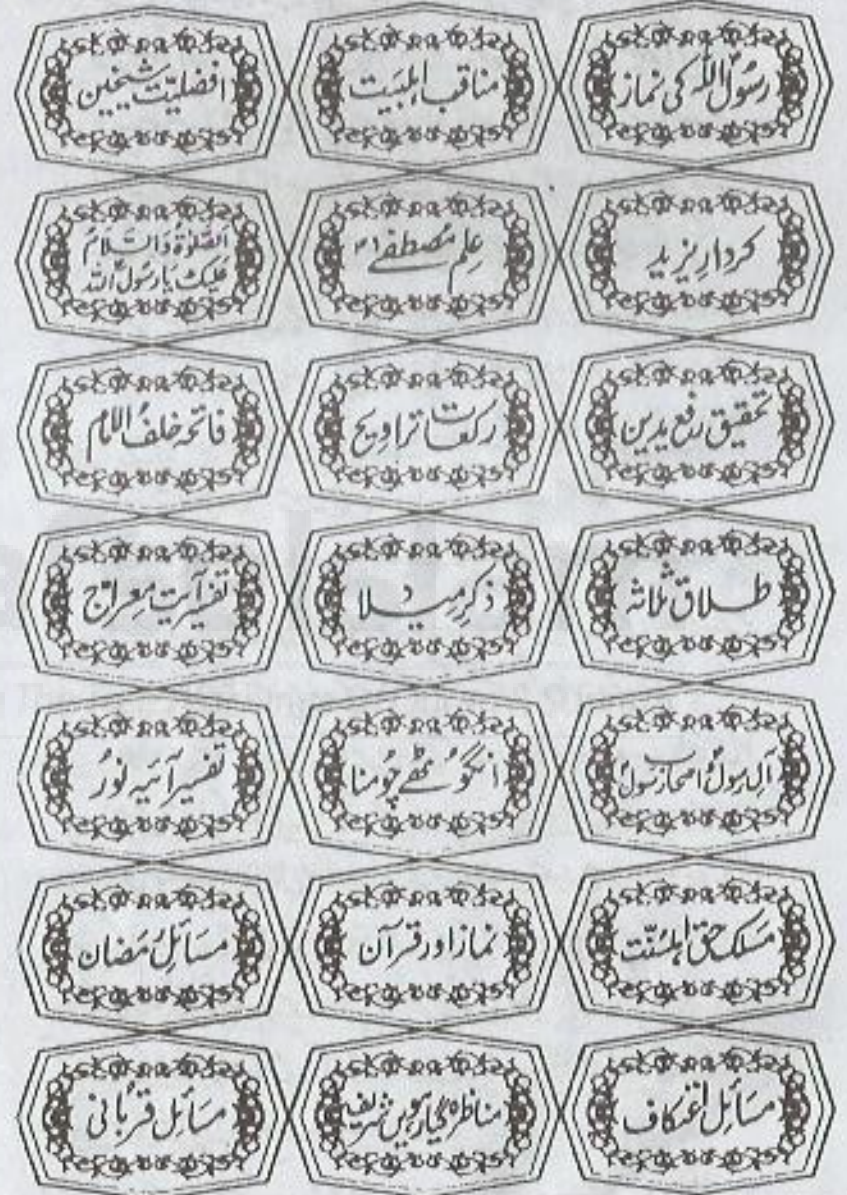 رسول اللہ کی نماز
مناقب اہلبیت
افضلیّت شیخین
کردارِ یزید
علم مصطفےٰ
الصّلوٰۃ والسّلام
علیک یا رسول اللہ
تحقیق رفع یدین
رکعات تراویح
فاتحہ خلف الامام
طلاق ثلاثہ
ذکرِ میلاد
تفسیر آیت معراج
آلِ رسول و اصحاب رسول
انگوٹھے چُومنا
تفسیر آئیہ نور
مسلک حق اہلسنّت
نماز اور قرآن
مسائل رمضان
مسائل اعتکاف
مناظرہ گیارہویں شریف
مسائل قربانی